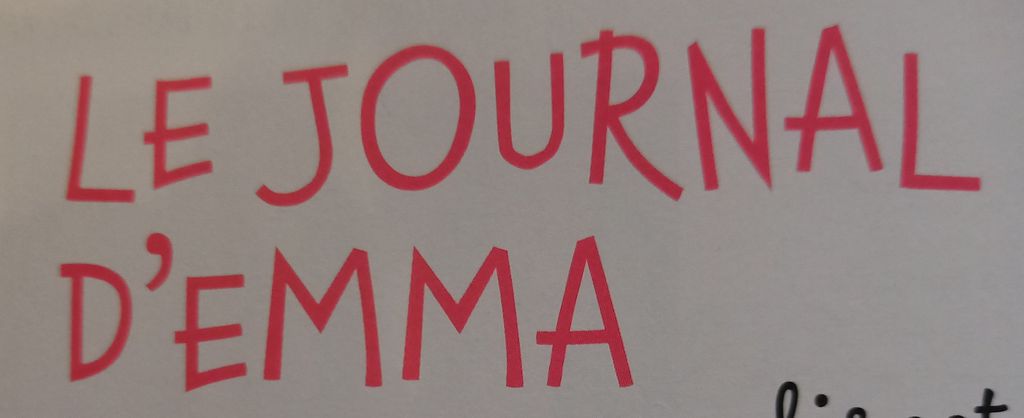 LE JOURNAL
D'EMMA